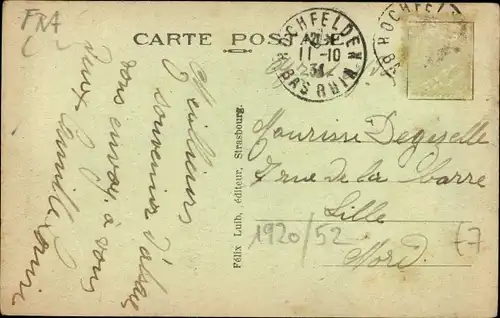 FRA
CARTE POSTALE
HOCHFELDEN
11-10
31
BAS RHIN
HOCHFEL
BA
Meilleurs
souvenir d'alsace
vous envoy. à vous
deux Camille
Félix Luib, éditeur, Strasbourg.
Maurisse Degezelle
7 rue de la barre
Lille
Nord.
1920/52